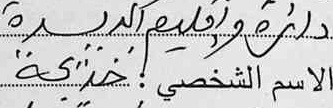 دائرة وإقليم الدريوش
الاسم الشخصي : خديجة